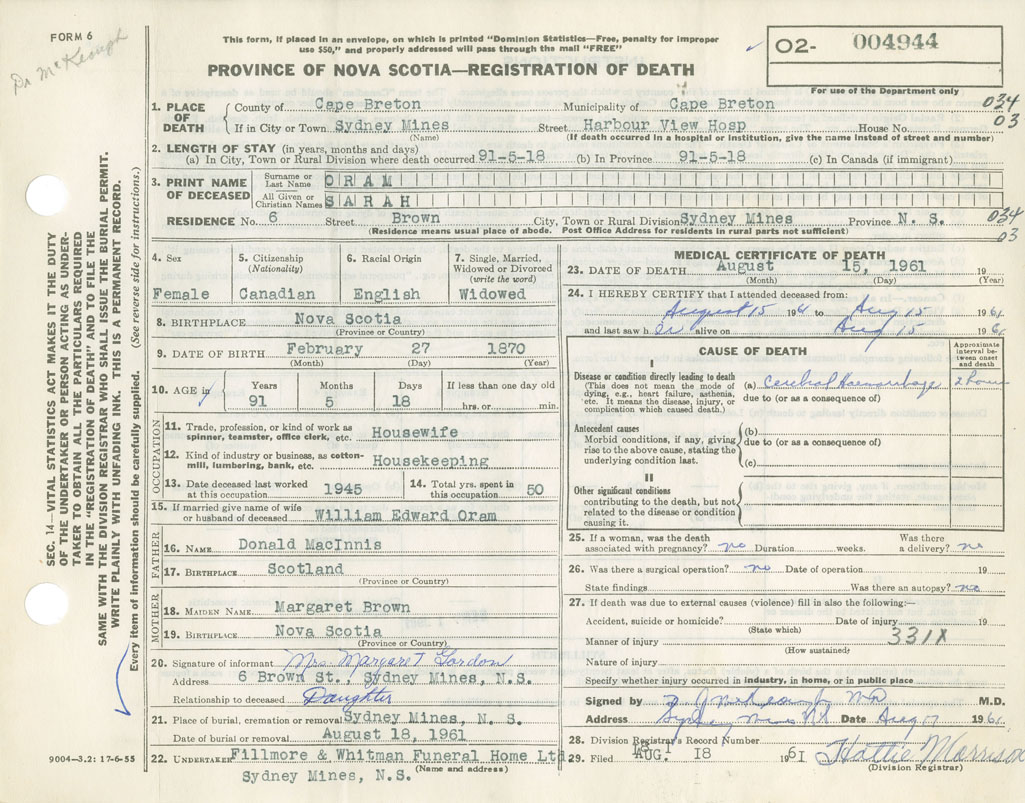 FORM 6
Dr McKeough
This form, if placed in an envelope, on which is printed "Dominion Statistics—Free, penalty for improper
use $50," and properly addressed will pass through the mail "FREE"
O2- 004944
PROVINCE OF NOVA SCOTIA—REGISTRATION OF DEATH
For use of the Department only
1. PLACE OF DEATH
County of Cape Breton Municipality of Cape Breton 034
If in City or Town Sydney Mines Street Harbour View Hosp House No. 03
(Name) (If death occurred in a hospital or institution, give the name instead of street and number)
2. LENGTH OF STAY (in years, months and days)
(a) In City, Town or Rural Division where death occurred 91-5-18 (b) In Province 91-5-18 (c) In Canada (if immigrant)
3. PRINT NAME OF DECEASED
Surname or Last Name ORAM
All Given or Christian Names SARAH
RESIDENCE No. 6 Street Brown City, Town or Rural Division Sydney Mines Province N. S. 034
(Residence means usual place of abode. Post Office Address for residents in rural parts not sufficient) 03
4. Sex
Female
5. Citizenship
(Nationality)
Canadian
6. Racial Origin
English
7. Single, Married,
Widowed or Divorced
(write the word)
Widowed
8. BIRTHPLACE Nova Scotia
(Province or Country)
9. DATE OF BIRTH February 27 1870
(Month) (Day) (Year)
10. AGE in
Years Months Days If less than one day old
91 5 18 hrs. or min.
OCCUPATION
11. Trade, profession, or kind of work as
spinner, teamster, office clerk, etc. Housewife
12. Kind of industry or business, as cotton-
mill, lumbering, bank, etc. Housekeeping
13. Date deceased last worked
at this occupation 1945
14. Total yrs. spent in
this occupation 50
15. If married give name of wife
or husband of deceased William Edward Oram
FATHER
16. NAME Donald MacInnis
17. BIRTHPLACE Scotland
(Province or Country)
MOTHER
18. MAIDEN NAME Margaret Brown
19. BIRTHPLACE Nova Scotia
(Province or Country)
20. Signature of informant Mrs. Margaret Gordon
Address 6 Brown St., Sydney Mines, N.S.
Relationship to deceased Daughter
21. Place of burial, cremation or removal Sydney Mines, N. S.
Date of burial or removal August 18, 1961
22. UNDERTAKER Fillmore & Whitman Funeral Home Ltd
Sydney Mines, N.S. (Name and address)
MEDICAL CERTIFICATE OF DEATH
23. DATE OF DEATH August 15, 1961 19
(Month) (Day) (Year)
24. I HEREBY CERTIFY that I attended deceased from:
August 15 1961 to Aug 15 1961
and last saw her alive on Aug 15 1961
CAUSE OF DEATH
Approximate
interval be-
tween onset
and death
I
Disease or condition directly leading to death
(This does not mean the mode of
dying, e.g., heart failure, asthenia,
etc. It means the disease, injury, or
complication which caused death.)
(a) Cerebral Haemorrhage 2 hours
due to (or as a consequence of)
Antecedent causes
Morbid conditions, if any, giving
rise to the above cause, stating the
underlying condition last.
(b)
due to (or as a consequence of)
(c)
II
Other significant conditions
contributing to the death, but not
related to the disease or condition
causing it.
25. If a woman, was the death Was there
associated with pregnancy? no Duration weeks. a delivery? no
26. Was there a surgical operation? no Date of operation 19
State findings Was there an autopsy? no
27. If death was due to external causes (violence) fill in also the following:—
Accident, suicide or homicide? Date of injury 19
(State which)
Manner of injury 331X
(How sustained)
Nature of injury
Specify whether injury occurred in industry, in home, or in public place
Signed by MD M.D.
Address Sydney Mines NS Date Aug 17 1961
28. Division Registrar's Record Number 181
29. Filed AUG. 18 1961 Hattie Morrison
(Division Registrar)
SEC. 14—VITAL STATISTICS ACT MAKES IT THE DUTY
OF THE UNDERTAKER OR PERSON ACTING AS UNDER-
TAKER TO OBTAIN ALL THE PARTICULARS REQUIRED
IN THE "REGISTRATION OF DEATH" AND TO FILE THE
SAME WITH THE DIVISION REGISTRAR WHO SHALL ISSUE THE BURIAL PERMIT.
WRITE PLAINLY WITH UNFADING INK. THIS IS A PERMANENT RECORD.
Every item of information should be carefully supplied. (See reverse side for instructions.)
9004—3.2: 17-6-55